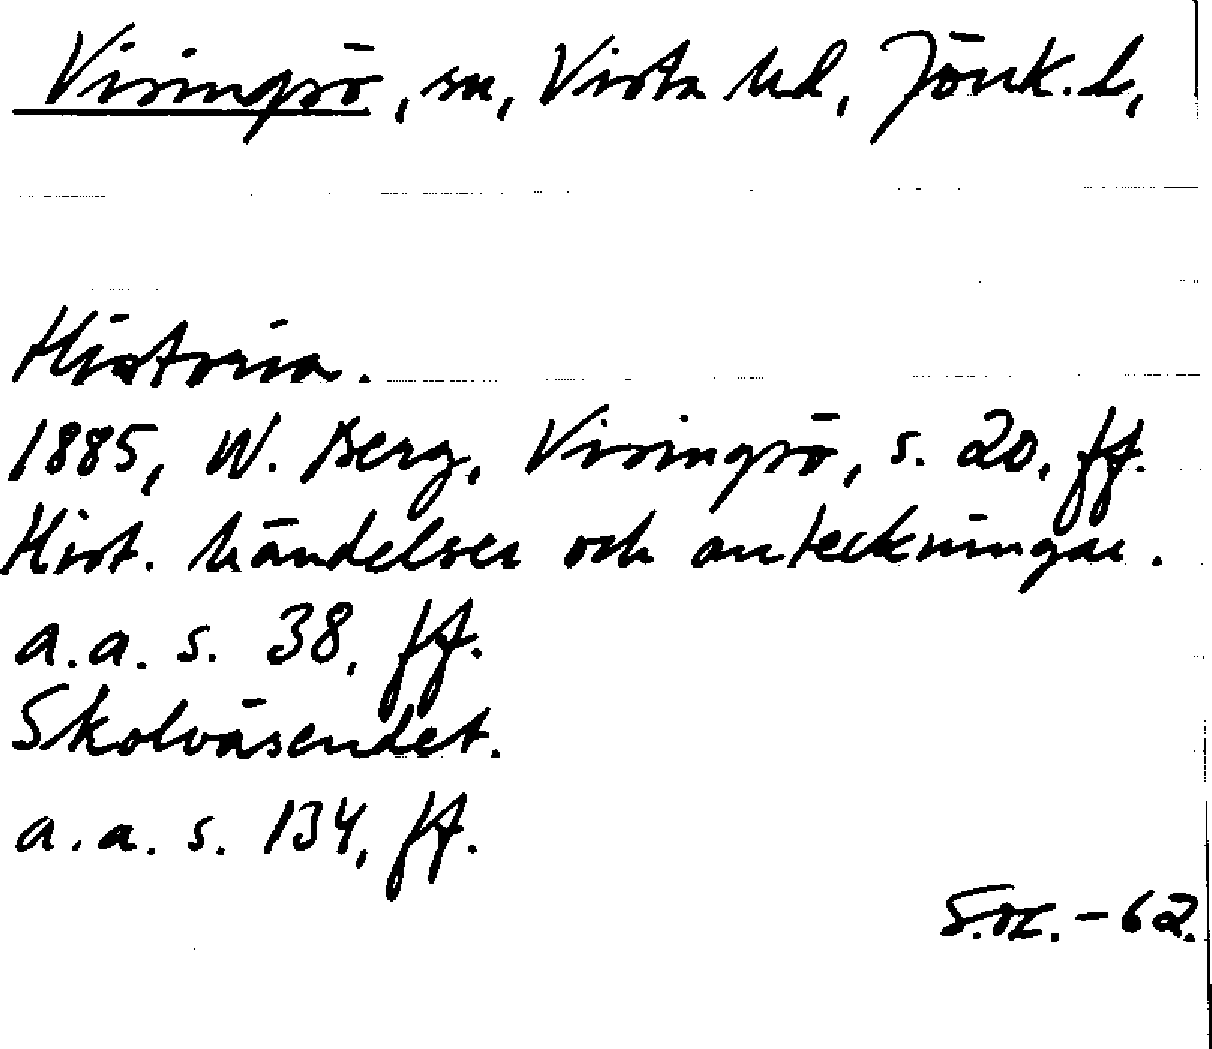 Visingsö, sn, Vista hd, Jönk. l,
Historia.
1885, W. Berg, Visingsö, s. 20, ff.
Hist. händelser och anteckningar.
a.a. s. 38, ff.
Skolväsendet.
a.a. s. 134, ff.
-62.